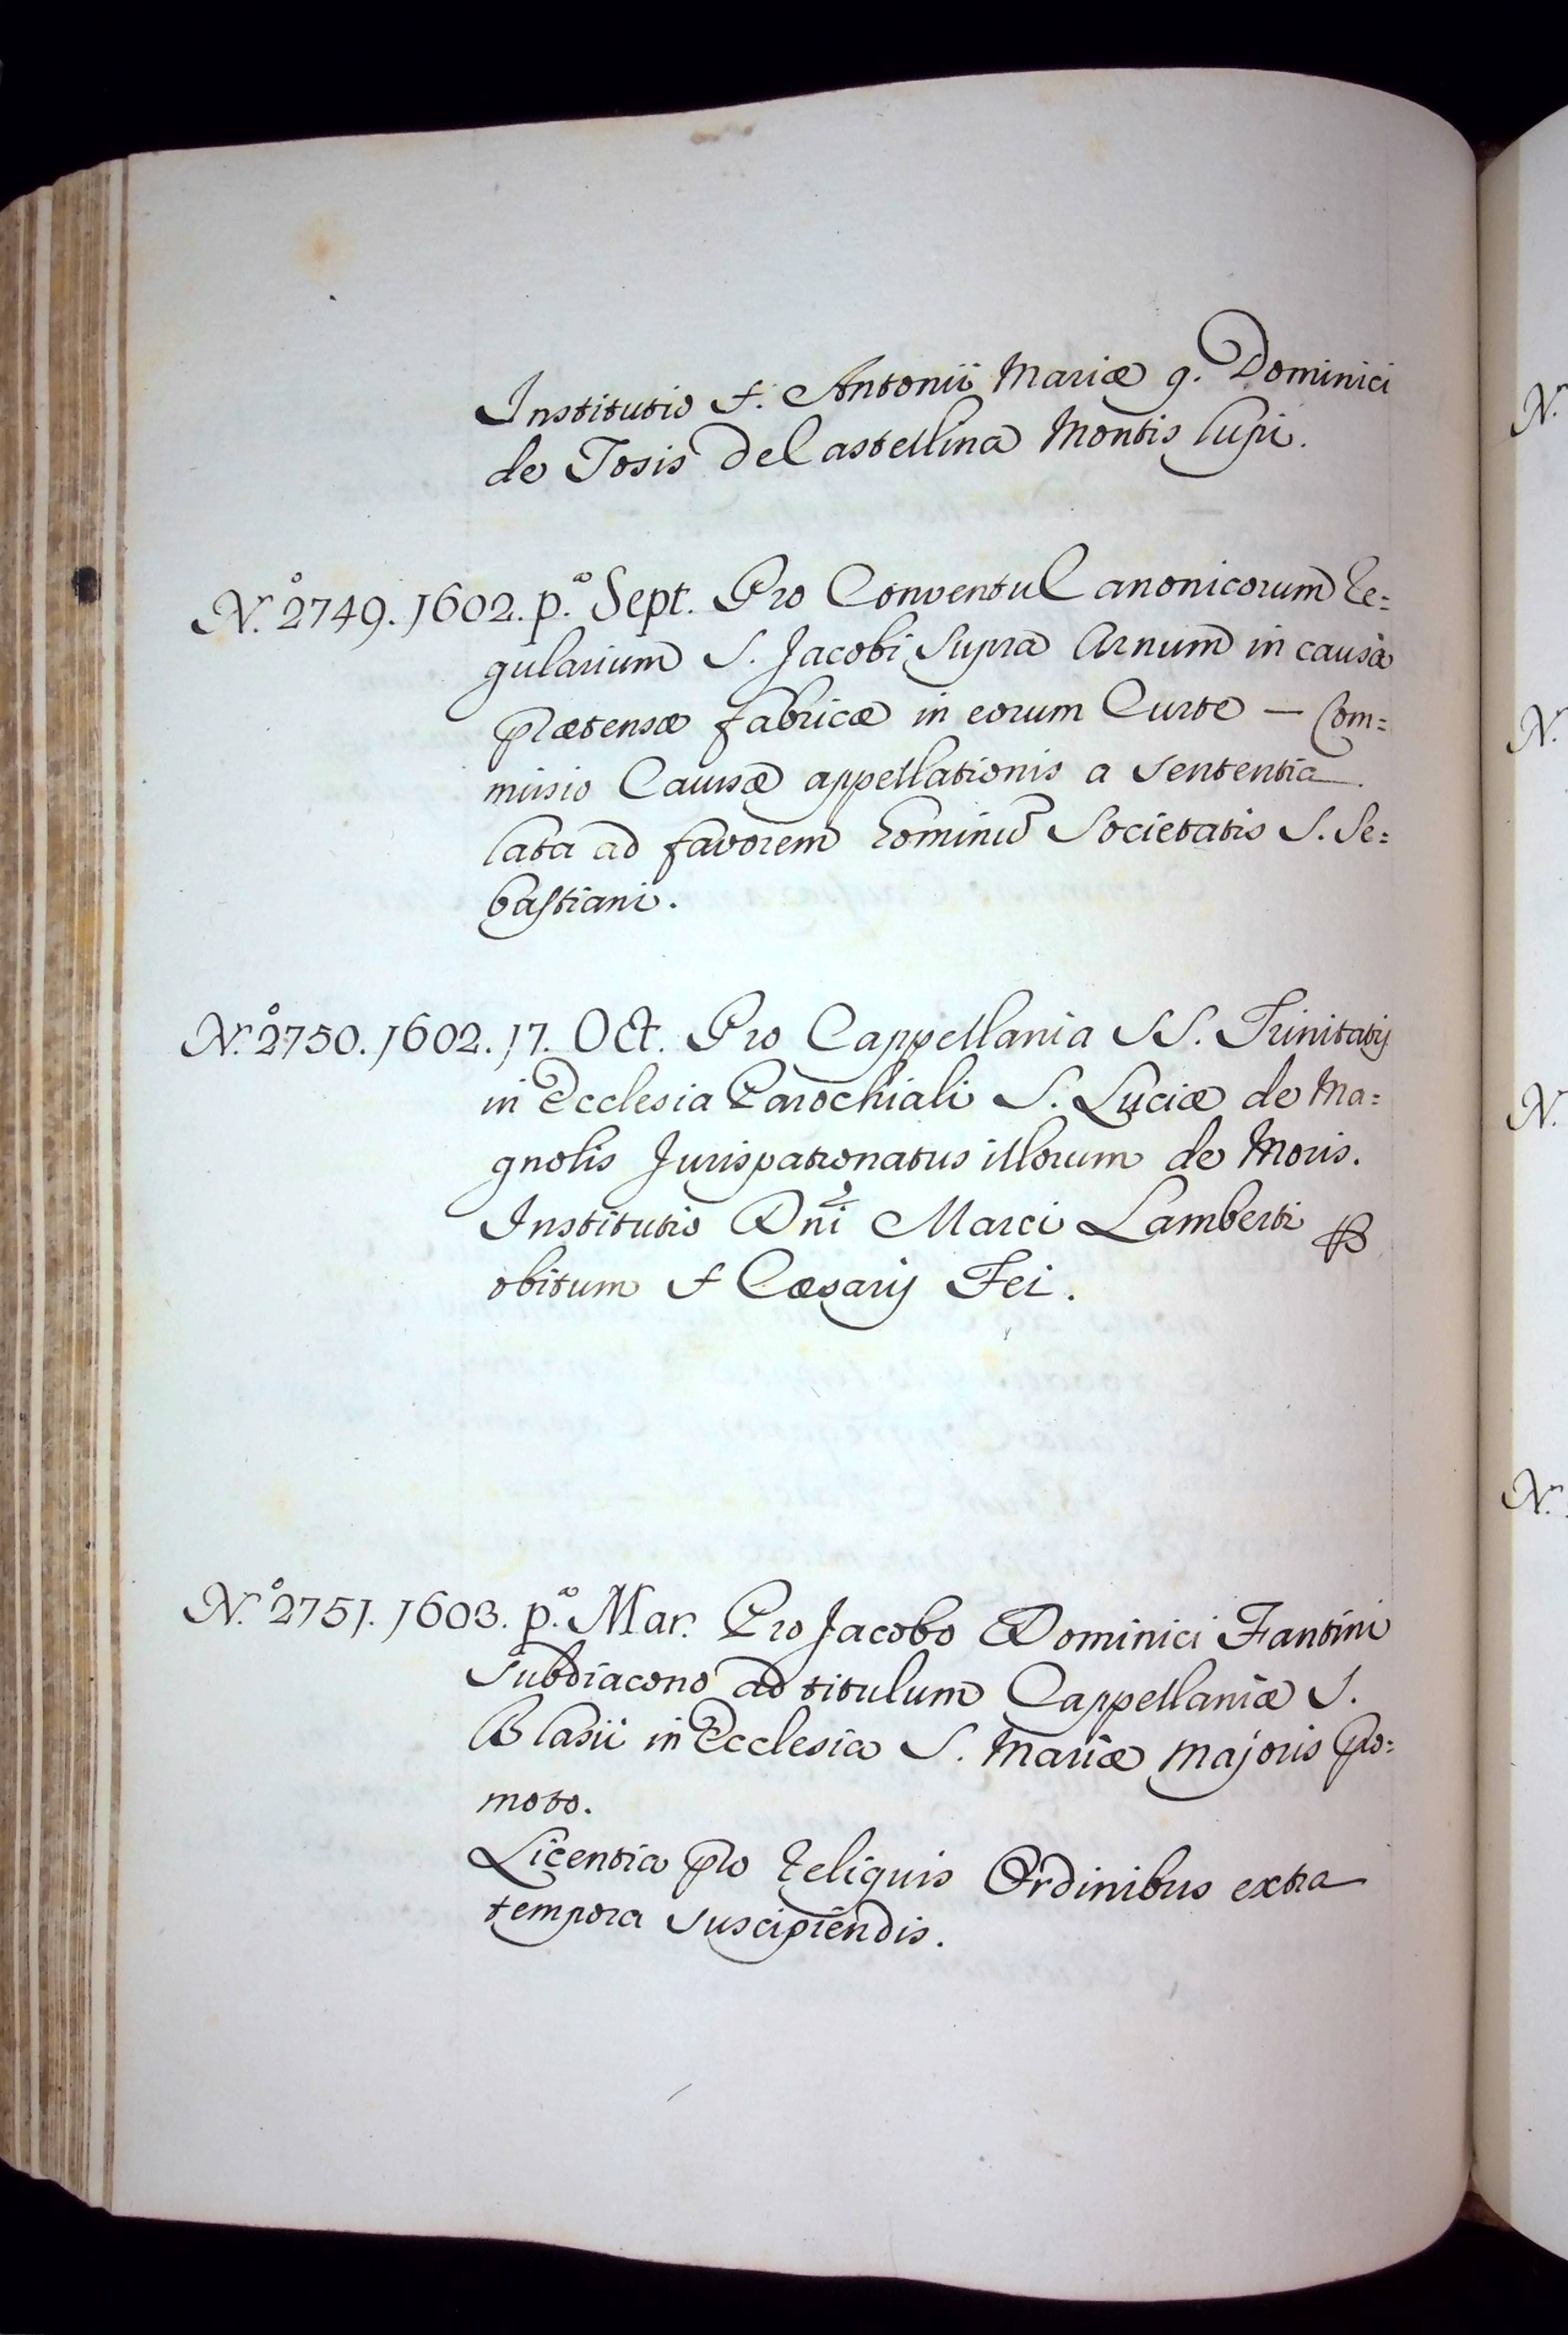 Institutio f. Antonii Mariæ q. Dominici
de Tosis de Castellina Montis Lupi.
N.º 2749. 1602. p.ª Sept. Pro Conventu Canonicorum Re=
gularium S. Jacobi Supra Arnum in causa
prætensæ fabricæ in eorum Curte — Com=
missio Causæ appellationis a Sententia
lata ad favorem hominū Societatis S. Se=
bastiani.
N.º 2750. 1602. 17. Oct. Pro Cappellania SS. Trinitatis
in Ecclesia Parochiali S. Luciæ de Ma=
gnolis Jurispatronatus illorum de Moris.
Institutio Dñi Marci Lamberti p
obitum f Cæsarij Fei.
N.º 2751. 1603. p.ª Mar. Pro Jacobo Dominici Fantini
Subdiacono ad titulum Cappellaniæ S.
Blasii in Ecclesia S. Mariæ Majoris pro=
moto.
Licentia pro Reliquis Ordinibus extra
tempora Suscipiendis.
N.
N.
N.
N.